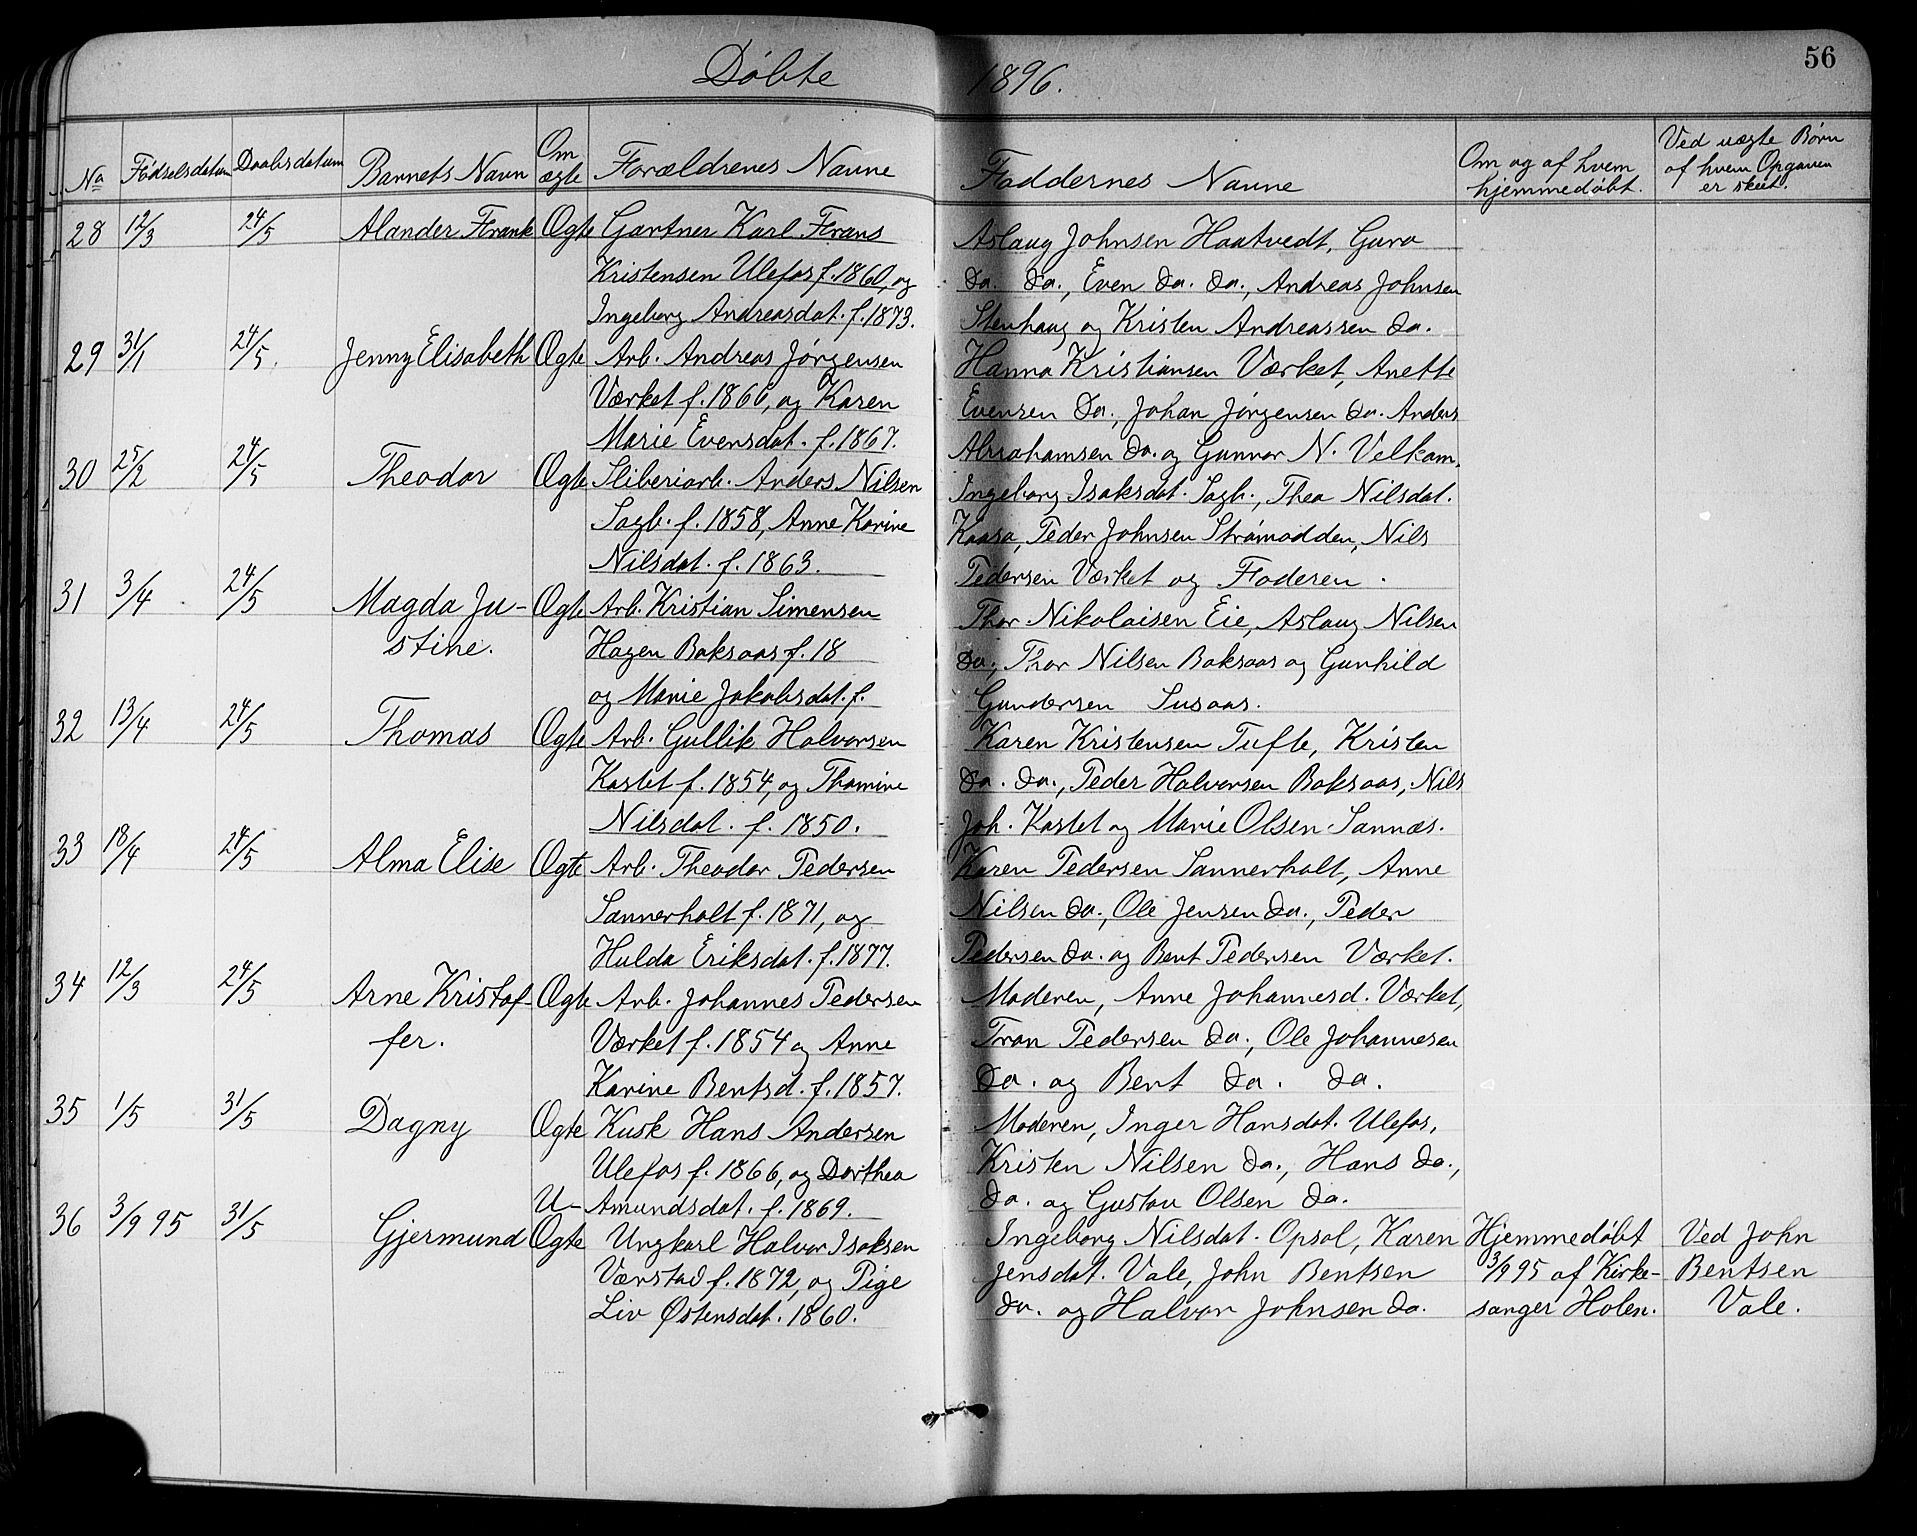 Døbte 1896.
56
No Fødselsdatum Daabsdatum Barnets Navn Om ægte Forældrenes Navne Faddernes Navne Om og af hvem hjemmedøbt. Ved uægte Børn af hvem Opgaven er skeet.
28 12/3 24/5 Alander Frank Ogte Gartner Karl Frans
Kristensen Ulefos f. 1860, og
Ingeborg Andreasdat. f. 1873.
Aslaug Johnsen Haatvedt, Guro
do. do., Even do. do., Andreas Johnsen
Stenhaug og Kristen Andreassen do.
29 31/1 24/5. Jenny Elisabeth Ogte Arb. Andreas Jørgensen
Værket f. 1866, og Karen
Marie Evensdat. f. 1867.
Hanna Kristiansen Værket, Anette
Evensen do., Johan Jørgensen do. Anders
Abrahamsen do. og Gunnar N. Velkam.
30 25/2 24/5 Theodor Ogte Sliberiarb. Anders Nilsen
Sagb. f. 1858, Anne Karine
Nilsdat. f. 1863.
Ingeborg Isaksdat. Sagb., Thea Nilsdat.
Kaasa, Peder Johnsen Strømodden, Nils
Pedersen Værket og Faderen.
31 3/4 24/5 Magda Ju-
stine.
Ogte Arb. Kristian Simensen
Hagen Baksaas f. 18
og Marie Jakobsdat. f.
Thor Nikolaisen Eie, Aslaug Nilsen
do., Thor Nilsen Baksaas og Gunhild
Gundersen Susaas.
32 13/4 24/5 Thomas Ogte Arb. Gullik Halvorsen
Kastet f. 1854, og Thomine
Nilsdat. f. 1850.
Karen Kristensen Tufte, Kristen
do. do., Peder Halvorsen Baksaas, Nils
Joh. Kastet og Marie Olsen Sannæs.
33 18/4 24/5 Alma Elise Ogte Arb. Theodor Pedersen
Sannerholt f. 1871, og
Hulda Eriksdat. f. 1877.
Karen Pedersen Sannerholt, Anne
Nilsen do., Ole Jensen do., Peder
Pedersen do. og Bent Pedersen Værket.
34 12/3 24/5 Arne Kristof-
fer.
Ogte Arb. Johannes Pedersen
Værket f. 1854 og Anne
Karine Bentsd. f. 1857.
Moderen, Anne Johannesd. Værket,
Tron Pedersen do., Ole Johannesen
do. og Bent do. do.
35 1/5 31/5 Dagny Ogte Kusk Hans Andersen
Ulefos f. 1866, og Dorthea
Amundsdat. f. 1869.
Moderen, Inger Hansdat. Ulefos,
Kristen Nilsen do., Hans do.,
do. og Gustav Olsen do.
36 3/9 95 31/5 Gjermund U-
Ogte Ungkarl Halvor Isaksen
Værstad f. 1872, og Pige
Liv Østensdat. 1860.
Ingeborg Nilsdat. Opsal, Karen
Jensdat. Vale, John Bentsen
do. og Halvor Johnsen do.
Hjemmedøbt
3/9 95 af Kirke-
sanger Holen.
Ved John
Bentsen
Vale.